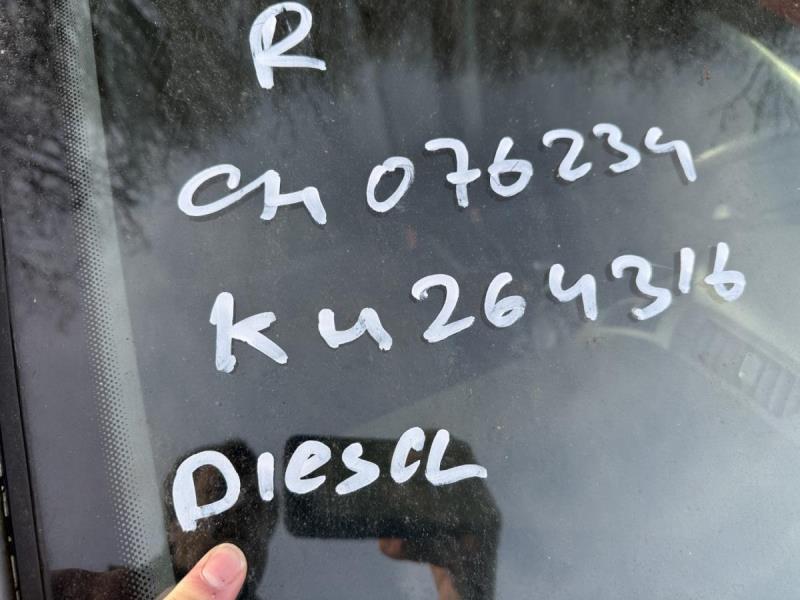 R
CH 076234
KM 264316
DIESEL